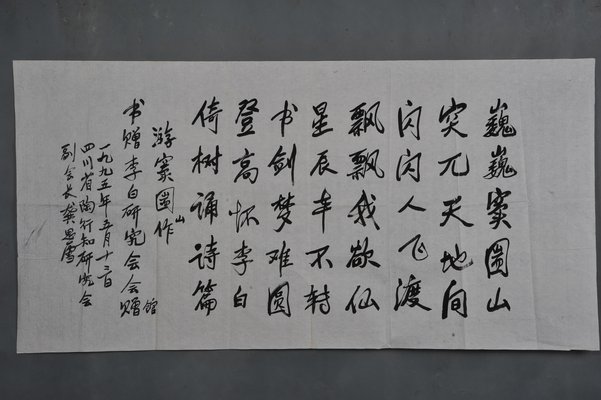 巍巍窦圌山
突兀天地间
闪闪人飞渡
飘飘我欲仙
星辰不转
书剑梦难圆
登高怀李白
倚树诵诗篇
游窦圌山作
书赠李白研究会会赠馆
一九九五年五月十二日
四川省陶行知研究会
副会长龚思雪